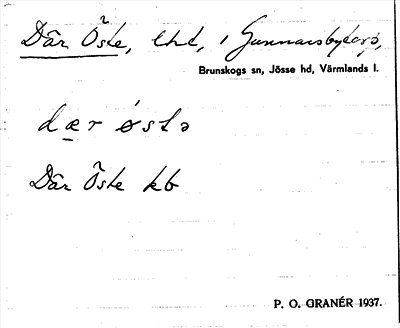 Där Öste, lhd, i Gunnarsbytorp,
Brunskogs sn, Jösse hd, Värmlands l.
dær østə
Där Öste kb
P. O. GRANÉR 1937.